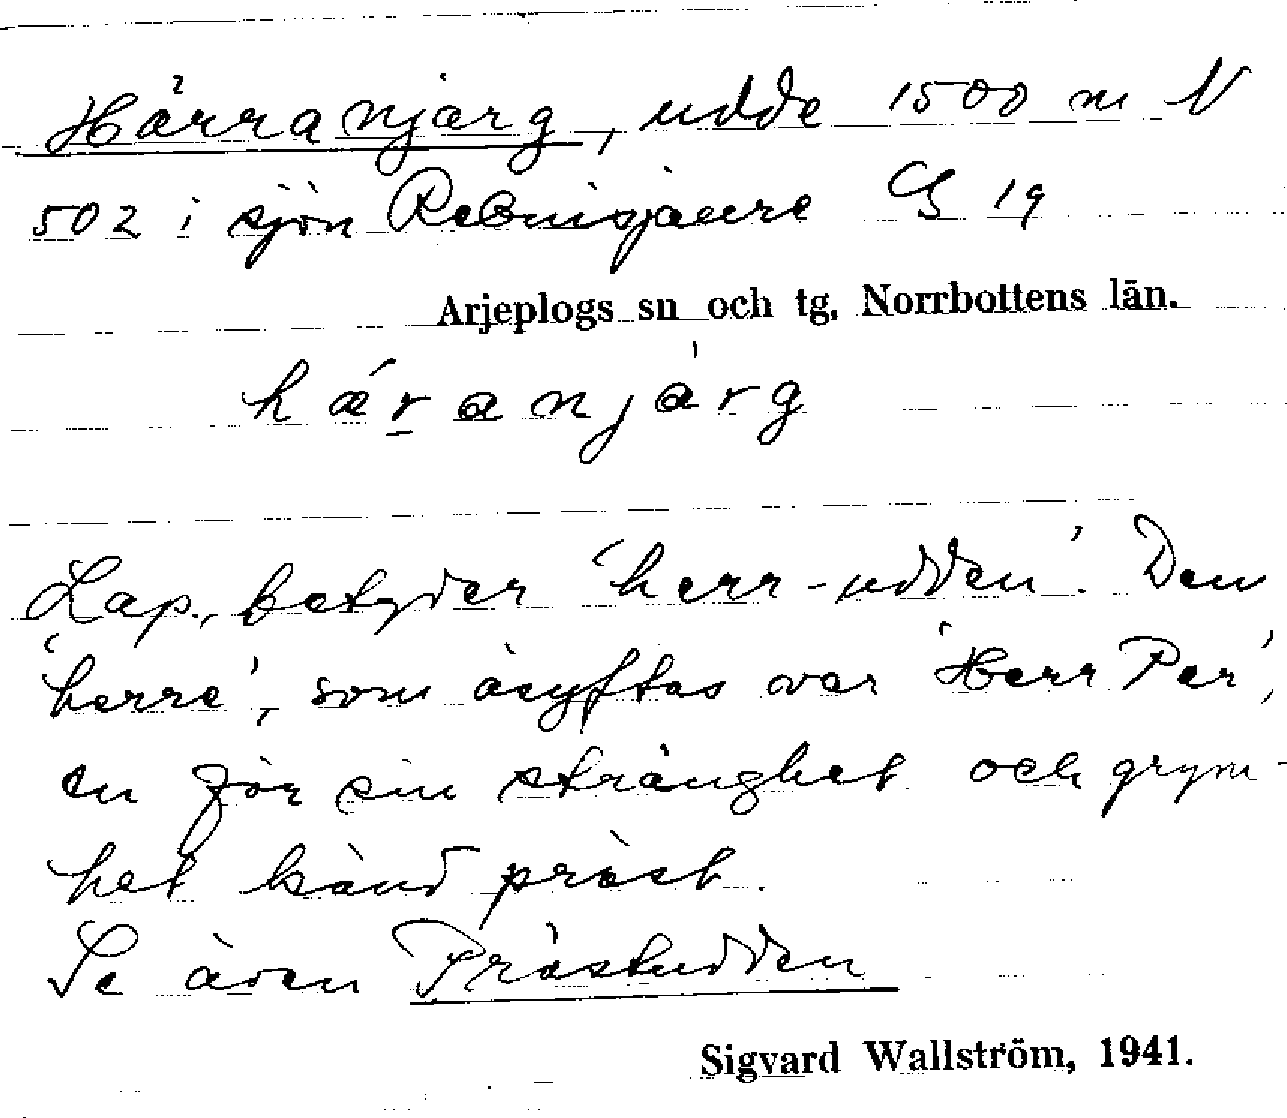 Härranjarg, udde 1500 m N
502 i sjön Rebnisjaure G 19
Arjeplogs sn och tg. Norrbottens län.
hárranjàrg
Lap., betyder 'herr-udden'. Den
'herre', som åsyftas var 'Herr Per',
en för sin stränghet och grym-
het känd präst.
Se även Prästudden
Sigvard Wallström, 1941.